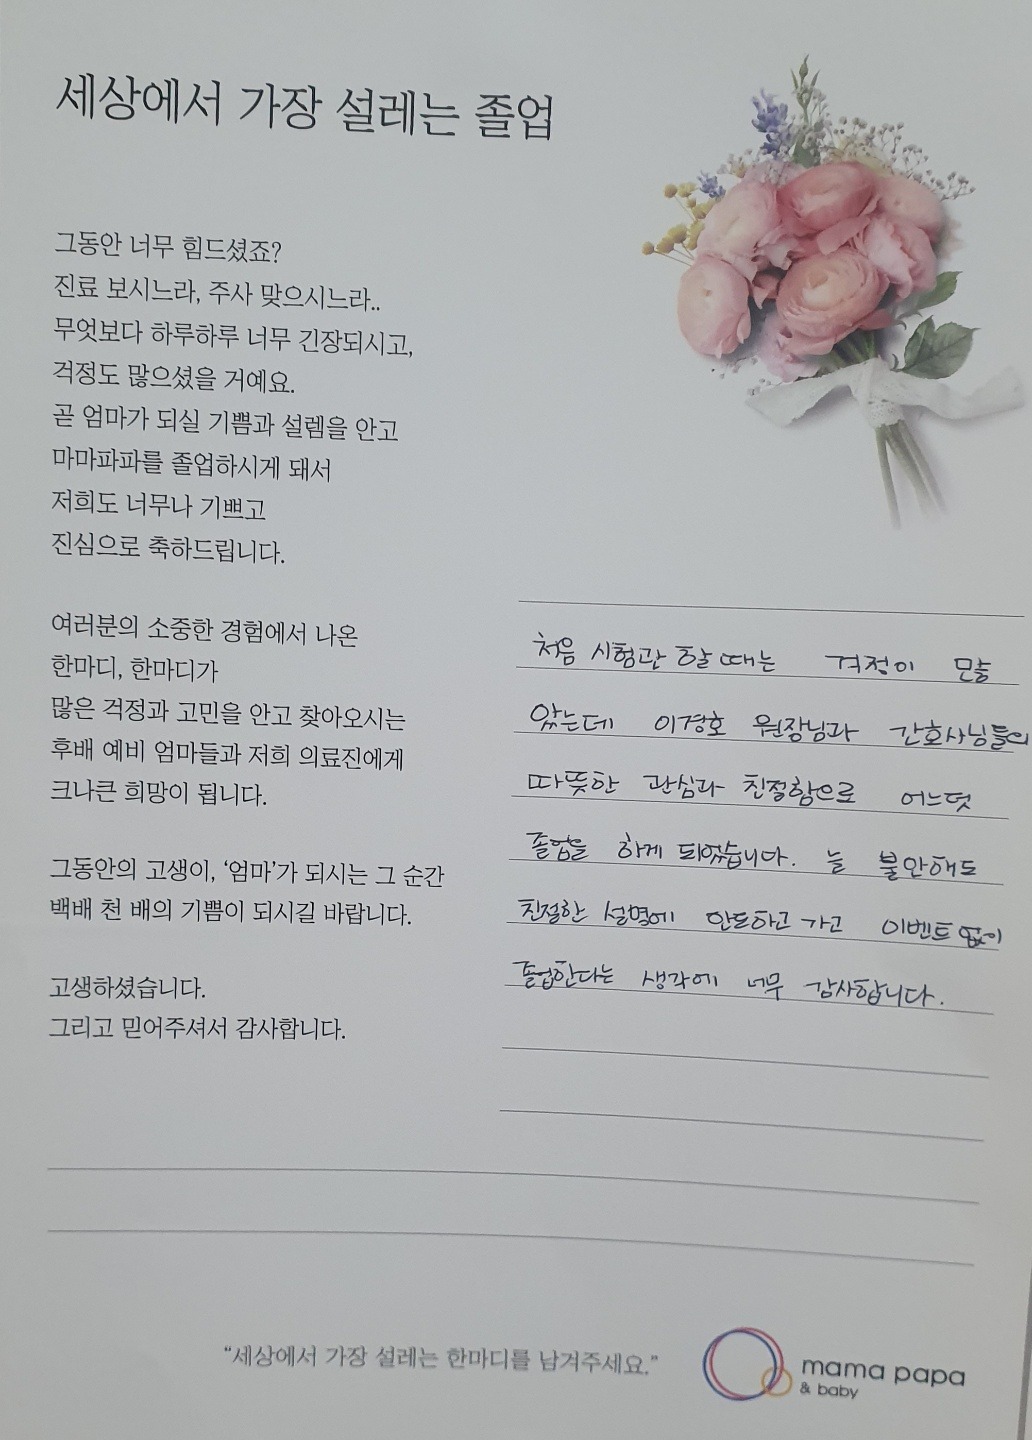 세상에서 가장 설레는 졸업
그동안 너무 힘드셨죠?
진료 보시느라, 주사 맞으시느라..
무엇보다 하루하루 너무 긴장되시고,
걱정도 많으셨을 거예요.
곧 엄마가 되실 기쁨과 설렘을 안고
마마파파를 졸업하시게 돼서
저희도 너무나 기쁘고
진심으로 축하드립니다.
여러분의 소중한 경험에서 나온
한마디, 한마디가
많은 걱정과 고민을 안고 찾아오시는
후배 예비 엄마들과 저희 의료진에게
크나큰 희망이 됩니다.
그동안의 고생이, ‘엄마’가 되시는 그 순간
백배 천 배의 기쁨이 되시길 바랍니다.
고생하셨습니다.
그리고 믿어주셔서 감사합니다.
처음 시험관 할 때는 걱정이 많
았는데 이경호 원장님과 간호사님들의
따뜻한 관심과 친절함으로 어느덧
졸업을 하게 되었습니다. 늘 불안해도
친절한 설명에 안도하고 가고 이벤트 없이
졸업한다는 생각에 너무 감사합니다.
“세상에서 가장 설레는 한마디를 남겨주세요.”
mama papa
& baby